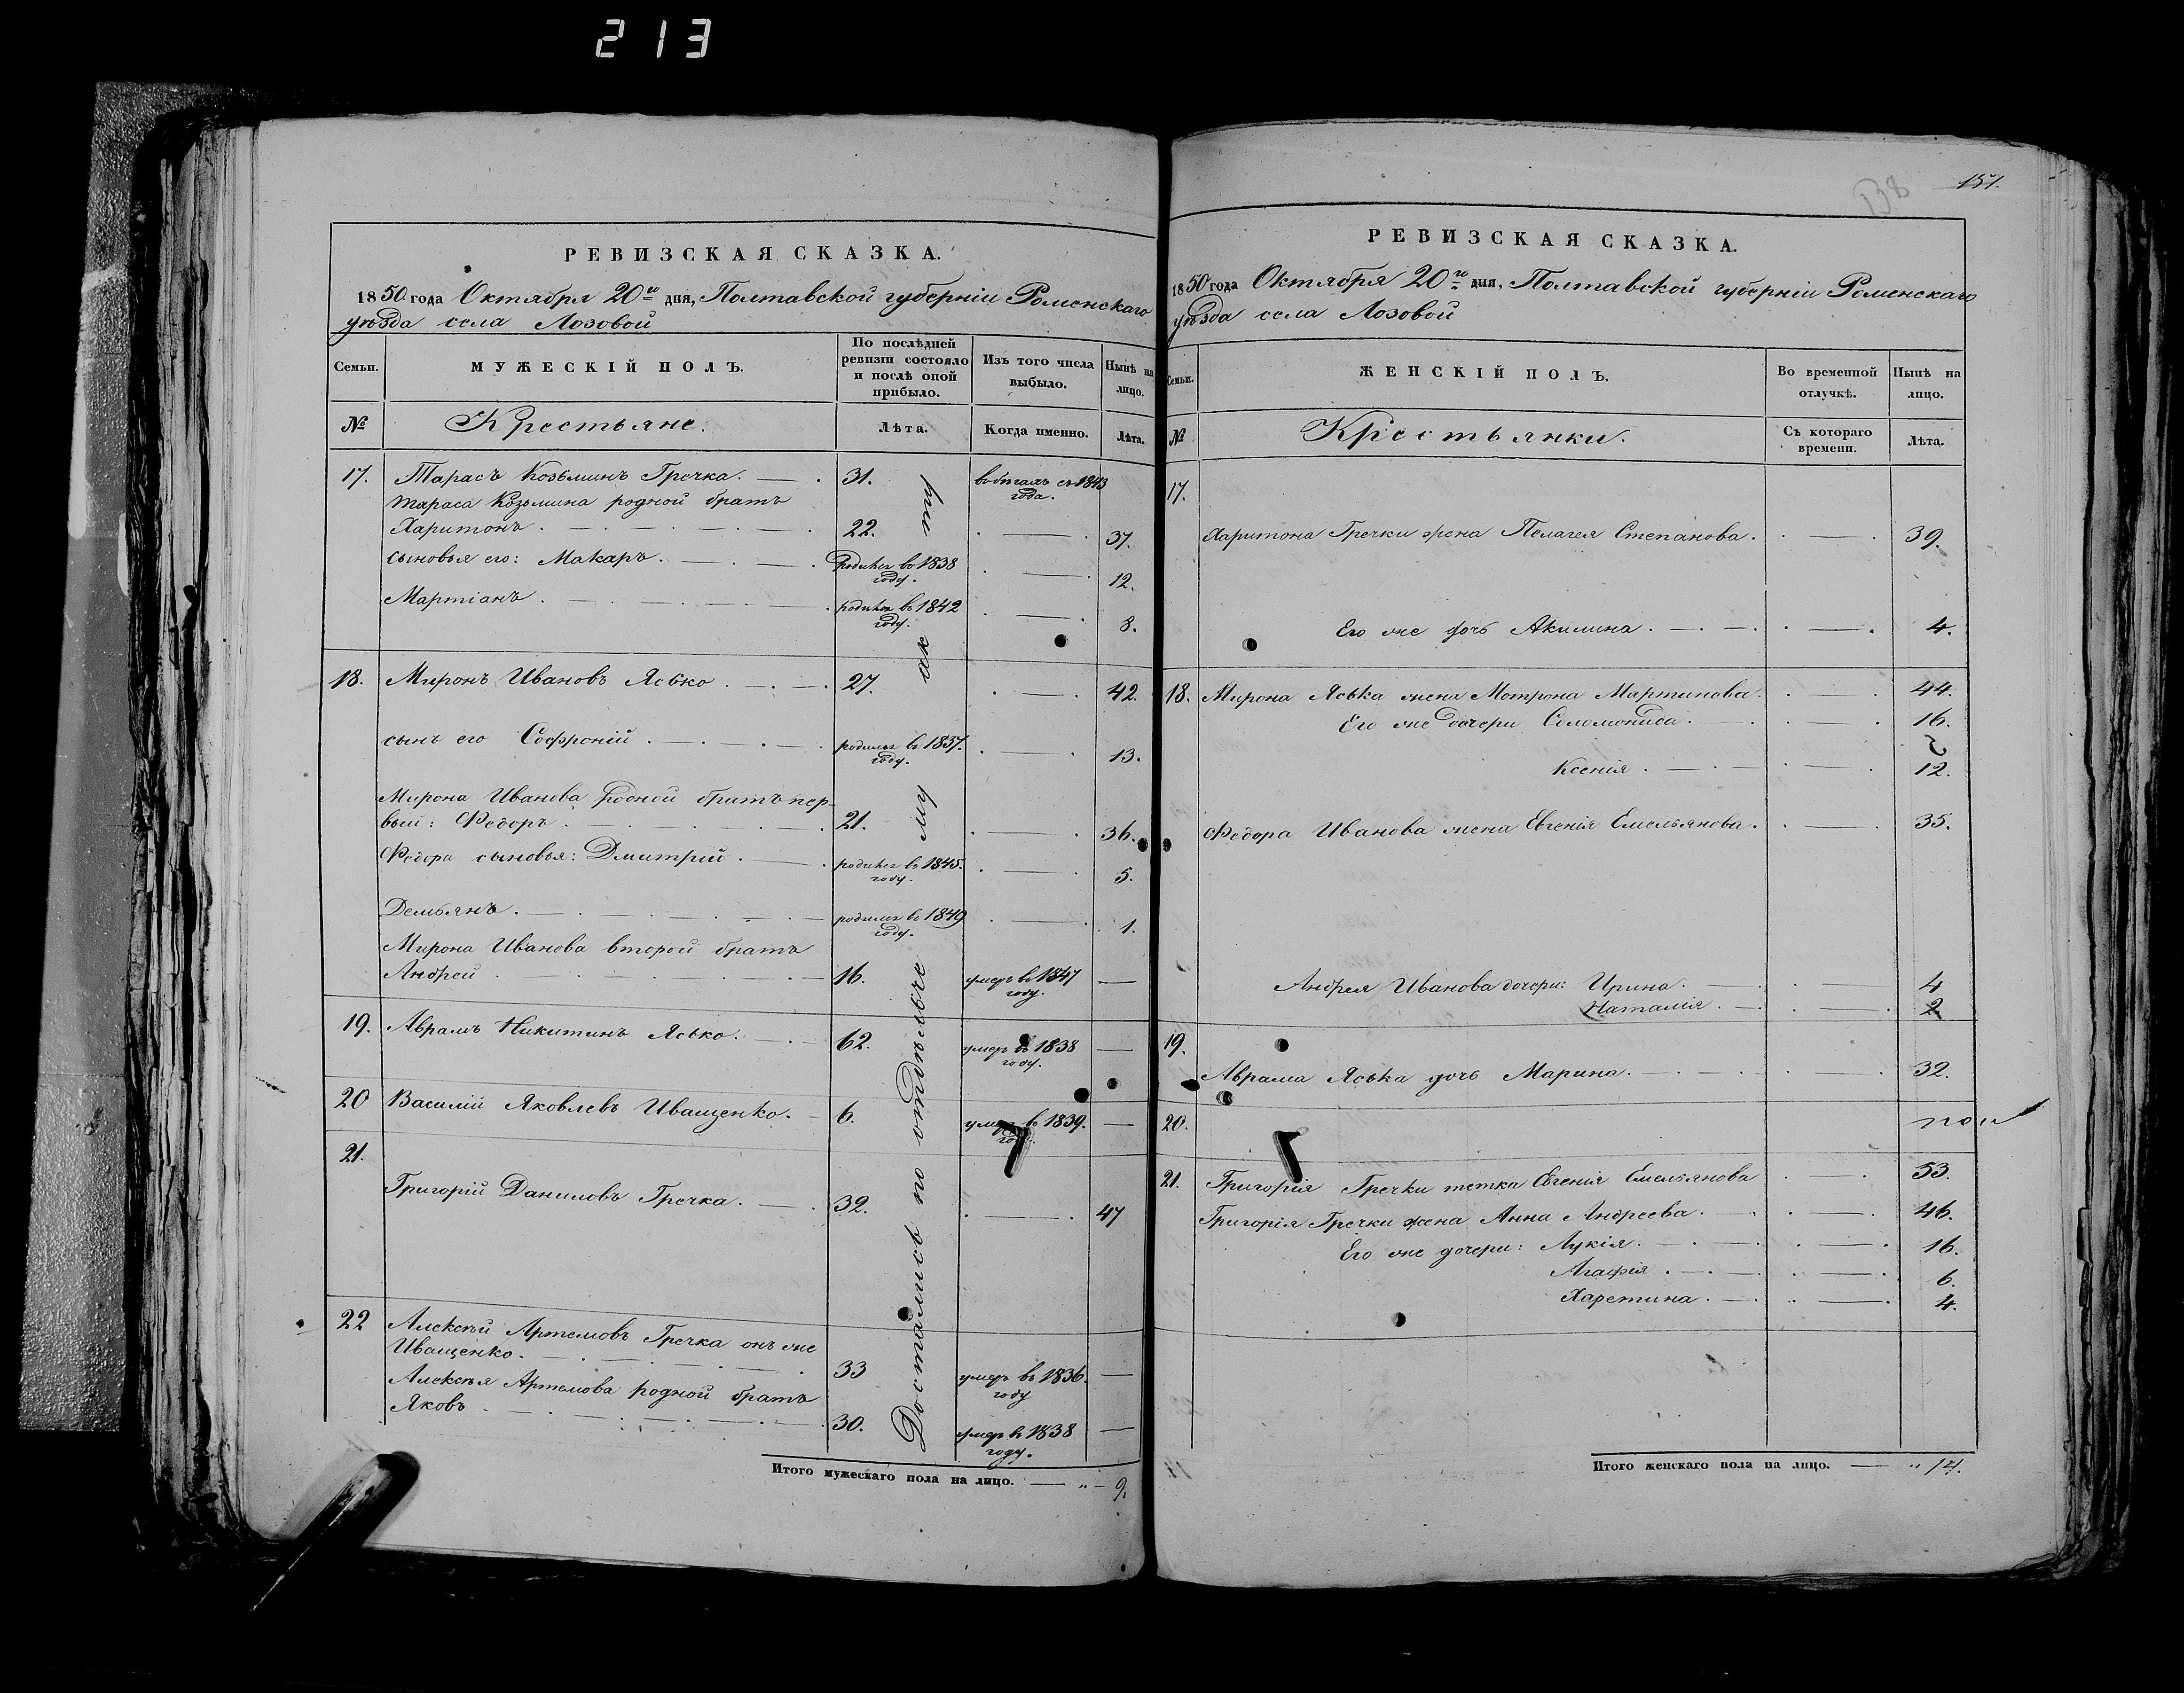 213
РЕВИЗСКАЯ СКАЗКА.
1850 года Октября 20го дня, Полтавской губерніи Роменскаго
уѣзда села Лозовой
Семьи.
МУЖЕСКІЙ ПОЛЪ.
По послѣдней
ревизіи состояло
и послѣ оной
прибыло.
Изъ того числа
выбыло.
Нынѣ на
лицо.
№
Крестьяне.
Лѣта.
Когда именно.
Лѣта.
17. Тарасъ Козьминъ Гречка. 31. въ бегахъ съ 1843
года.
Тараса Козьмина родной братъ
Харитонъ 22. 37.
сыновья его: Макаръ. родился въ 1838
году. 12.
Мартіанъ родился въ 1842
году. 8.
18. Миронъ Ивановъ Ясько 27. 42.
сынъ его Софроній родился въ 1837.
году. 13.
Мирона Иванова родной братъ пер-
вый: Федоръ 21. 36.
Федора сыновья: Дмитрій родился въ 1845.
году. 5.
Демьянъ. родился въ 1849
году. 1.
Мирона Иванова второй братъ
Андрей 16. умеръ въ 1847 —
году.
19. Аврамъ Никитинъ Ясько. 62. умеръ въ 1838 —
году.
20 Василій Яковлевъ Иващенко. 6. умеръ въ 1839. —
году.
21.
Григорій Даниловъ Гречка. 32. 47
22 Алексѣй Артемовъ Гречка онъ же
Иващенко. 33 умеръ въ 1836. —
году
Алексѣя Артемова родной братъ
Яковъ 30. умеръ въ 1838 —
году.
Достались по отдѣльно му ак ту
Итого мужескаго пола на лицо. — „ – 9.
138
151.
РЕВИЗСКАЯ СКАЗКА.
1850 года Октября 20го дня, Полтавской губерніи Роменскаго
уѣзда села Лозовой
Семьи.
ЖЕНСКІЙ ПОЛЪ.
Во временной
отлучкѣ.
Нынѣ на
лицо.
№
Крестьянки.
Съ котораго
времени.
Лѣта.
17.
Харитона Гречки жена Пелагея Степанова. 39.
Его же дочь Акилина 4.
18. Мирона Яська жена Мотрона Мартинова. 44.
Его же дочери Соломонида. 16.
Ксенія 12.
Федора Иванова жена Евгенія Емельянова. 35.
Андрея Иванова дочери: Ирина. 4
Наталія 2.
19.
Аврама Яська дочь Марина. 32.
20.
21. Григорія Гречки тетка Евгенія Емельянова 53.
Григорія Гречки жена Анна Андреева. 46.
Его же дочери: Лукія. 16.
Агафія 6.
Харетина 4.
Итого женскаго пола на лицо. — „ 14.